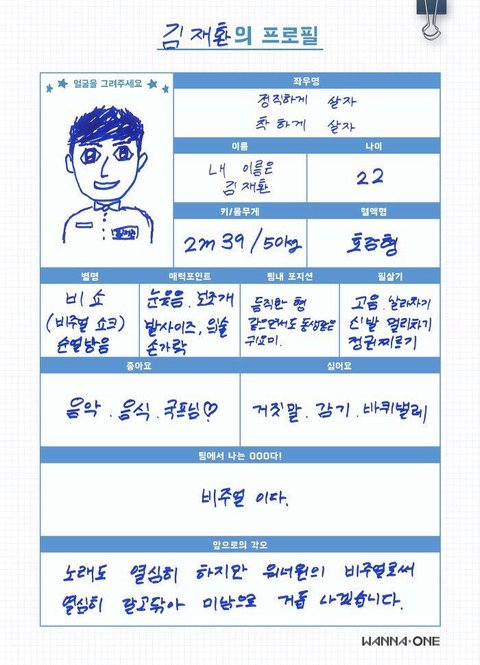 김재환의 프로필
얼굴을 그려주세요
좌우명
정직하게 살자
착하게 살자
이름
나이
내 이름은
김재환
22
키/몸무게
혈액형
2m 39 / 50kg
호랑형
별명
매력포인트
팀내 포지션
필살기
비쇼
(비주얼 쇼크)
순열낳음
눈웃음, 보조개
발사이즈, 의술
손가락
듬직한 형
같으면서도 동생같은
귀요미.
고음, 날라차기
신발 멀리차기
정권찌르기
좋아요
싫어요
음악. 음식. 국프님♡
거짓말. 감기. 바퀴벌레
팀에서 나는 OOO다!
비주얼 이다.
앞으로의 각오
노래도 열심히 하지만 워너원의 비주얼로써
열심히 갈고닦아 미남으로 거듭 나겠습니다.
WANNA·ONE